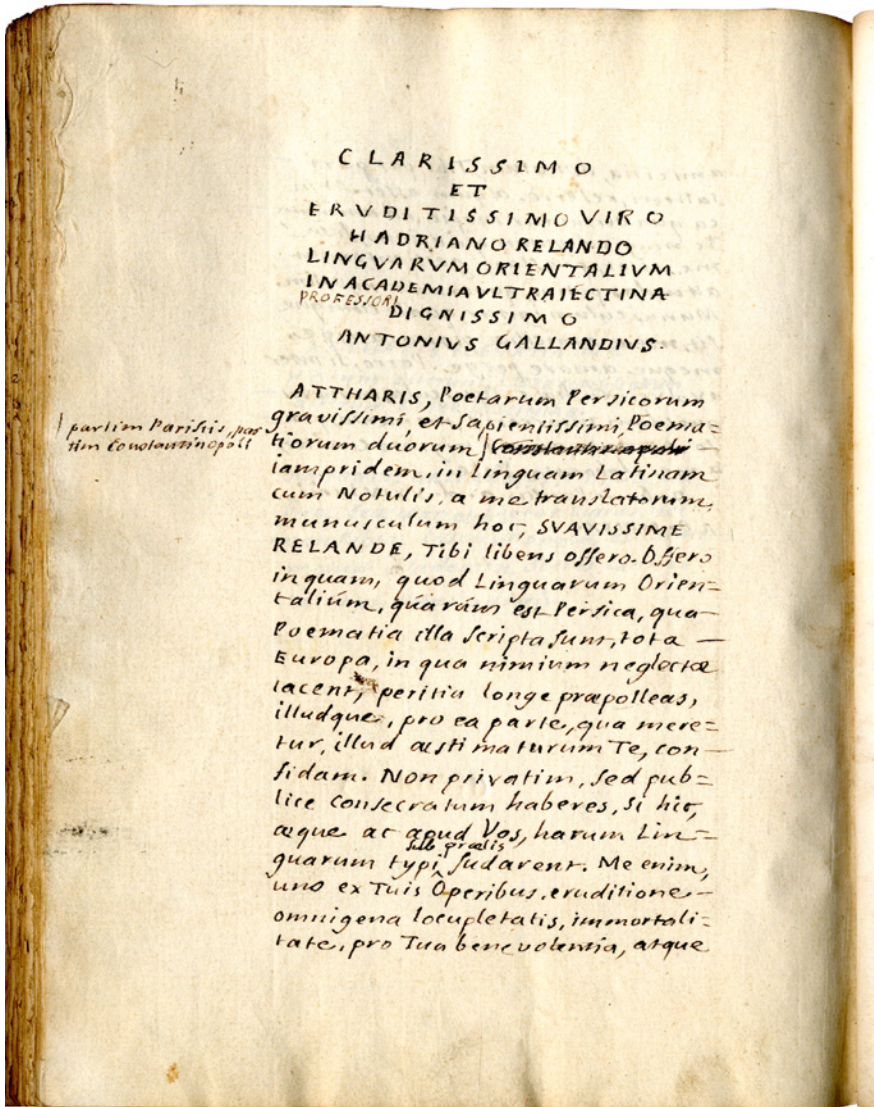 CLARISSIMO
ET
ERVDITISSIMO VIRO
HADRIANO RELANDO
LINGVARVM ORIENTALIVM
IN ACADEMIA VLTRAIECTINA
PROFESSORI
DIGNISSIMO
ANTONIVS GALLANDIVS.
ATTHARIS, Poetarum Persicorum
gravissimi, et Sapientissimi, Poema=
| partim Parisiis, par
tim Constantinopoli
tiorum duorum | Constantinopoli —
iampridem, in Linguam Latinam
cum Notulis, a me translatorum,
munusculum hoc, SVAVISSIME
RELANDE, Tibi libens offero. Offero
inquam, quod Linguarum Orien=
talium, quarum est Persica, qua
Poematia illa scripta sunt, tota —
Europa, in qua nimium neglectæ
iacent, peritia longe præpolleas,
illudque, pro ea parte, qua mere=
tur, illud æstimaturum Te, con—
fidam. Non privatim, sed pub=
lice consecratum haberes, si hic,
æque ac apud Vos, harum Lin=
sub prælis
guarum typi ^ sudarent. Me enim,
uno ex Tuis Operibus, eruditione —
omnigena locupletatis, immortali=
tate, pro Tua benevolentia, atque